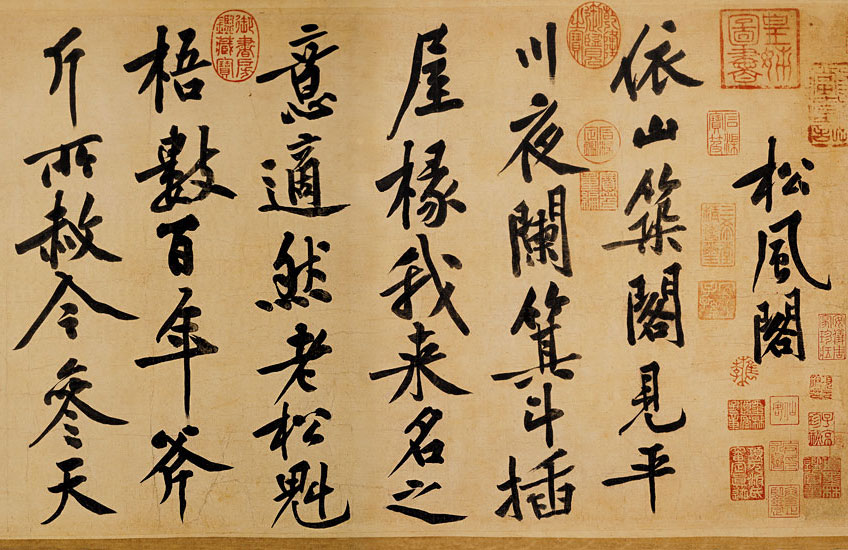 松風閣
皇姊
圖書
依山築閣見平
川夜闌箕斗插
屋椽我來名之
意適然老松魁
御書房
鑑藏寶
梧數百年斧
斤所赦今參天